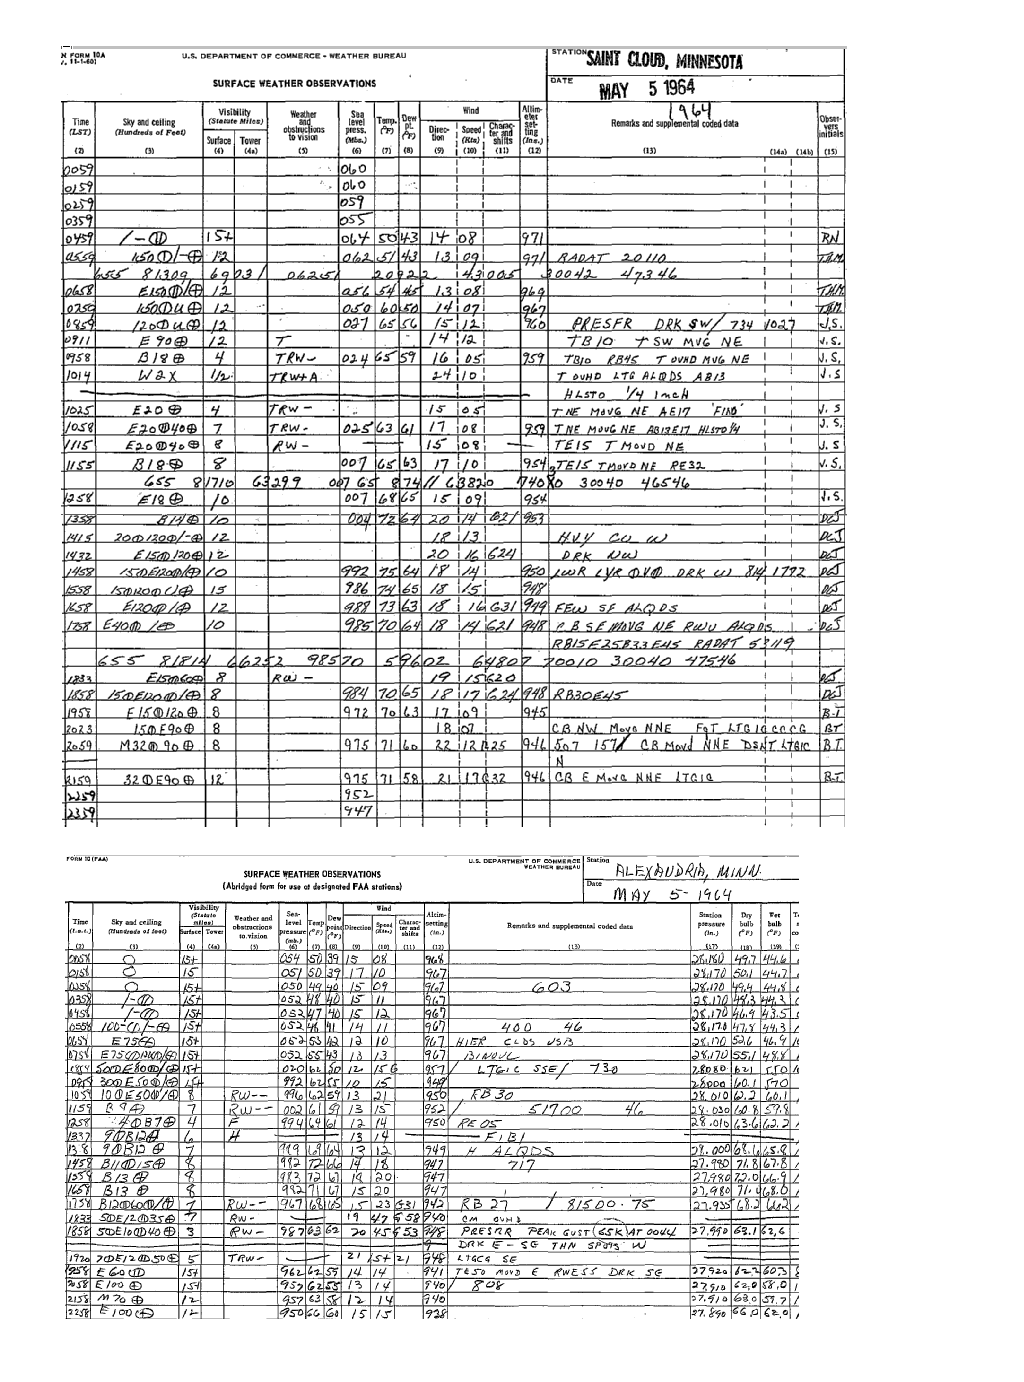 N FORM 10A
U.S. DEPARTMENT OF COMMERCE - WEATHER BUREAU
STATION SAINT CLOUD, MINNESOTA
SURFACE WEATHER OBSERVATIONS
DATE MAY 5 1964
1964
Time (LST) Sky and ceiling (Hundreds of Feet) Visibility (Statute Miles) Surface Tower Weather and obstructions to vision Sea level press. (Mbs.) Temp. (°F) Dew pt. (°F) Wind Direction Speed (Kts) Character and shifts Altimeter setting (Ins.) Remarks and supplemental coded data Observers initials
(2) (3) (4) (4a) (5) (6) (7) (8) (9) (10) (11) (12) (13) (14a) (14b) (15)
0059 060
0159 060
0259 059
0359 055
0459 /-⦶ 15+ 064 50 43 14 08 971 RN
0559 150⦶/-⊕ 12 062 51 43 13 09 971 RADAT 20110
655 81309 30042 47346
0658 E150⦶/⊕ 12 056 54 45 13 08 969
0759 150⦶U⊕ 12 050 60 50 14 07 967
0859 120⦶U⊕ 12 027 65 56 15 12 960 PRESFR DRK SW/ 734 1027 J.S.
0911 E 90⊕ 12 T 14 12 TB10 T SW MVG NE J.S.
0958 B18⊕ 4 TRW- 024 65 59 16 05 959 TB10 RB45 T OVHD MVG NE J.S.
1014 W2X 1/2 TRW+A 24 10 T OVHD LTG ALQDS AB13 J.S
HLSTO 1/4 INCH
1025 E20⊕ 4 TRW- 15 05 T NE MOVG NE AE17 "FIBO" J.S
1058 E20⦶40⊕ 7 TRW- 025 63 61 17 08 959 T NE MOVG NE AB13E17 HLSTO 1/4 J.S.
1115 E20⦶40⊕ 8 RW- 15 08 TE15 T MOVD NE J.S
1155 B18⊕ 8 007 65 63 17 10 954 TE15 T MOVD NE RE32 J.S.
655 81710 63299 007 65 30040 46546
1258 E18⊕ 10 007 68 65 15 09 954 J.S.
1358 B14⊕ 10 004 72 64 20 14 953 DGJ
1415 20⦶120⦶/-⊕ 12 18 13 HVY CU W DGJ
1432 E15⦶120⊕ 12 20 16 G24 DRK NW DGJ
1458 15⦶E120⦶/⊕ 10 992 75 64 18 14 950 LWR LYR OVD DRK W 814 1772 DGJ
1558 15⦶120⦶U⊕ 15 986 74 65 18 15 948 DGJ
1658 E120⦶/⊕ 12 988 73 63 18 16 G31 949 FEW SF ALQDS DGJ
1758 E40⦶/⊕ 10 985 70 64 18 14 G21 948 CB SE MOVG NE RWU ALQDS DGJ
RB15E25B33E45 RADAT
655 81814 66252 98570 59602 64807 70010 30040 47546
1833 E15⦶60⊕ 8 RW- 19 15 G20 DGJ
1858 15⦶E120⦶/⊕ 8 984 70 65 18 17 G24 948 RB30E45 DGJ
1958 E15⦶120⊕ 8 972 70 63 17 09 945 B.T
2023 15⦶E90⊕ 8 18 07 CB NW MOVG NNE FQT LTGICCCCG BT
2059 M32⦶90⊕ 8 975 71 60 22 12 946 507 157/ CB MOVD NNE DSNT LTGIC B.T.
N
2159 32⦶E90⊕ 12 975 71 58 21 17 G32 946 CB E MOVG NNE LTGIC B.T.
2259 952
2359 947
FORM 10 (FAA)
U.S. DEPARTMENT OF COMMERCE
WEATHER BUREAU
Station ALEXANDRIA, MINN.
SURFACE WEATHER OBSERVATIONS
(Abridged form for use at designated FAA stations)
Date MAY 5-1964
Time (l.s.t.) Sky and ceiling (Hundreds of feet) Visibility (Statute miles) Surface Tower Weather and obstructions to vision Sea-level pressure (mb.) Temp (°F) Dew point (°F) Wind Direction Speed (Kts.) Character and shifts Altimeter setting (in.) Remarks and supplemental coded data Station pressure (in.) Dry bulb (°F) Wet bulb (°F)
(2) (3) (4) (4a) (5) (6) (7) (8) (9) (10) (11) (12) (13) (17) (18) (19)
0058 O 15+ 054 50 39 15 08 968 28.180 49.7 44.6
0158 O 15 051 50 39 17 10 967 28.170 50.1 44.7
0258 O 15+ 050 49 40 15 09 967 603 28.170 49.4 44.8
0358 /-⦶ 15+ 052 48 40 15 11 967 28.170 48.3 44.3
0458 /-⦶ 15+ 052 47 40 15 12 967 28.170 46.9 43.5
0558 100-⦶/-⊕ 15+ 052 48 41 14 11 967 400 46 28.170 47.8 44.3
0658 E75⊕ 15+ 052 53 42 12 10 967 HIER CLDS VSB 28.170 52.6 46.9
0758 E75⦶100⦶/⊕ 15+ 052 55 43 13 13 967 BINOVC 28.170 55.1 48.8
0858 50⦶E80⦶/⊕ 15+ 020 62 50 12 15G 957 LTGIC SSE/ 730 28.080 62.1 55.0
0958 30⦶E50⦶/⊕ 15+ 992 62 55 10 15 949 28.000 60.1 57.0
1058 10⦶E50⦶/⊕ 8 RW-- 996 62 59 13 21 950 RB30 28.010 62.2 60.1
1158 B9⊕ 7 RW-- 002 61 59 13 15 952 / 51700 46 28.030 60.8 59.8
1258 4⦶B7⊕ 4 F 994 64 61 12 14 950 RE05 28.010 63.6 62.2
1337 9⦶B12⊕ 6 H 13 14 FIBI
1358 9⦶B12⊕ 7 68 64 13 12 949 H ALQDS 28.000 68.1 65.8
1458 B11⦶15⊕ 8 982 72 66 14 18 947 717 27.980 71.8 67.8
1558 B13⊕ 8 983 72 67 14 20 947 27.980 72.0
1658 B13⊕ 8 982 71 67 15 20 947 27.980 71.4 68.0
1758 B12⦶60⦶/⊕ 7 RW-- 967 68 65 15 23 G31 942 RB27 / 81500 75 27.935 68.2
1833 5⦶E12⦶35⊕ 7 RW- 19 47 G58 940 CM OVHD
1858 5⦶E10⦶40⊕ 3 RW- 987 63 62 20 45 G53 948 PRESRR PEAK GUST (65K AT 0044) 27.990 63.1 62.6
DRK E-SE THN SPOTS W
1920 7⦶E12⦶50⊕ 5 TRW- 21 948 LTGCG SE
1958 E60⦶ 15+ 962 62 59 14 14 941 TE50 MOVD E RWESS DRK SE 27.920 60.3
2058 E100⊕ 15+ 957 62 55 13 14 940 / 808 27.910 62.0 58.0
2158 M70⊕ 12 957 63 58 12 14 940 27.910 63.0 59.7
2258 E100⊕ 12 950 66 60 15 15 938 27.890 66.0 62.0